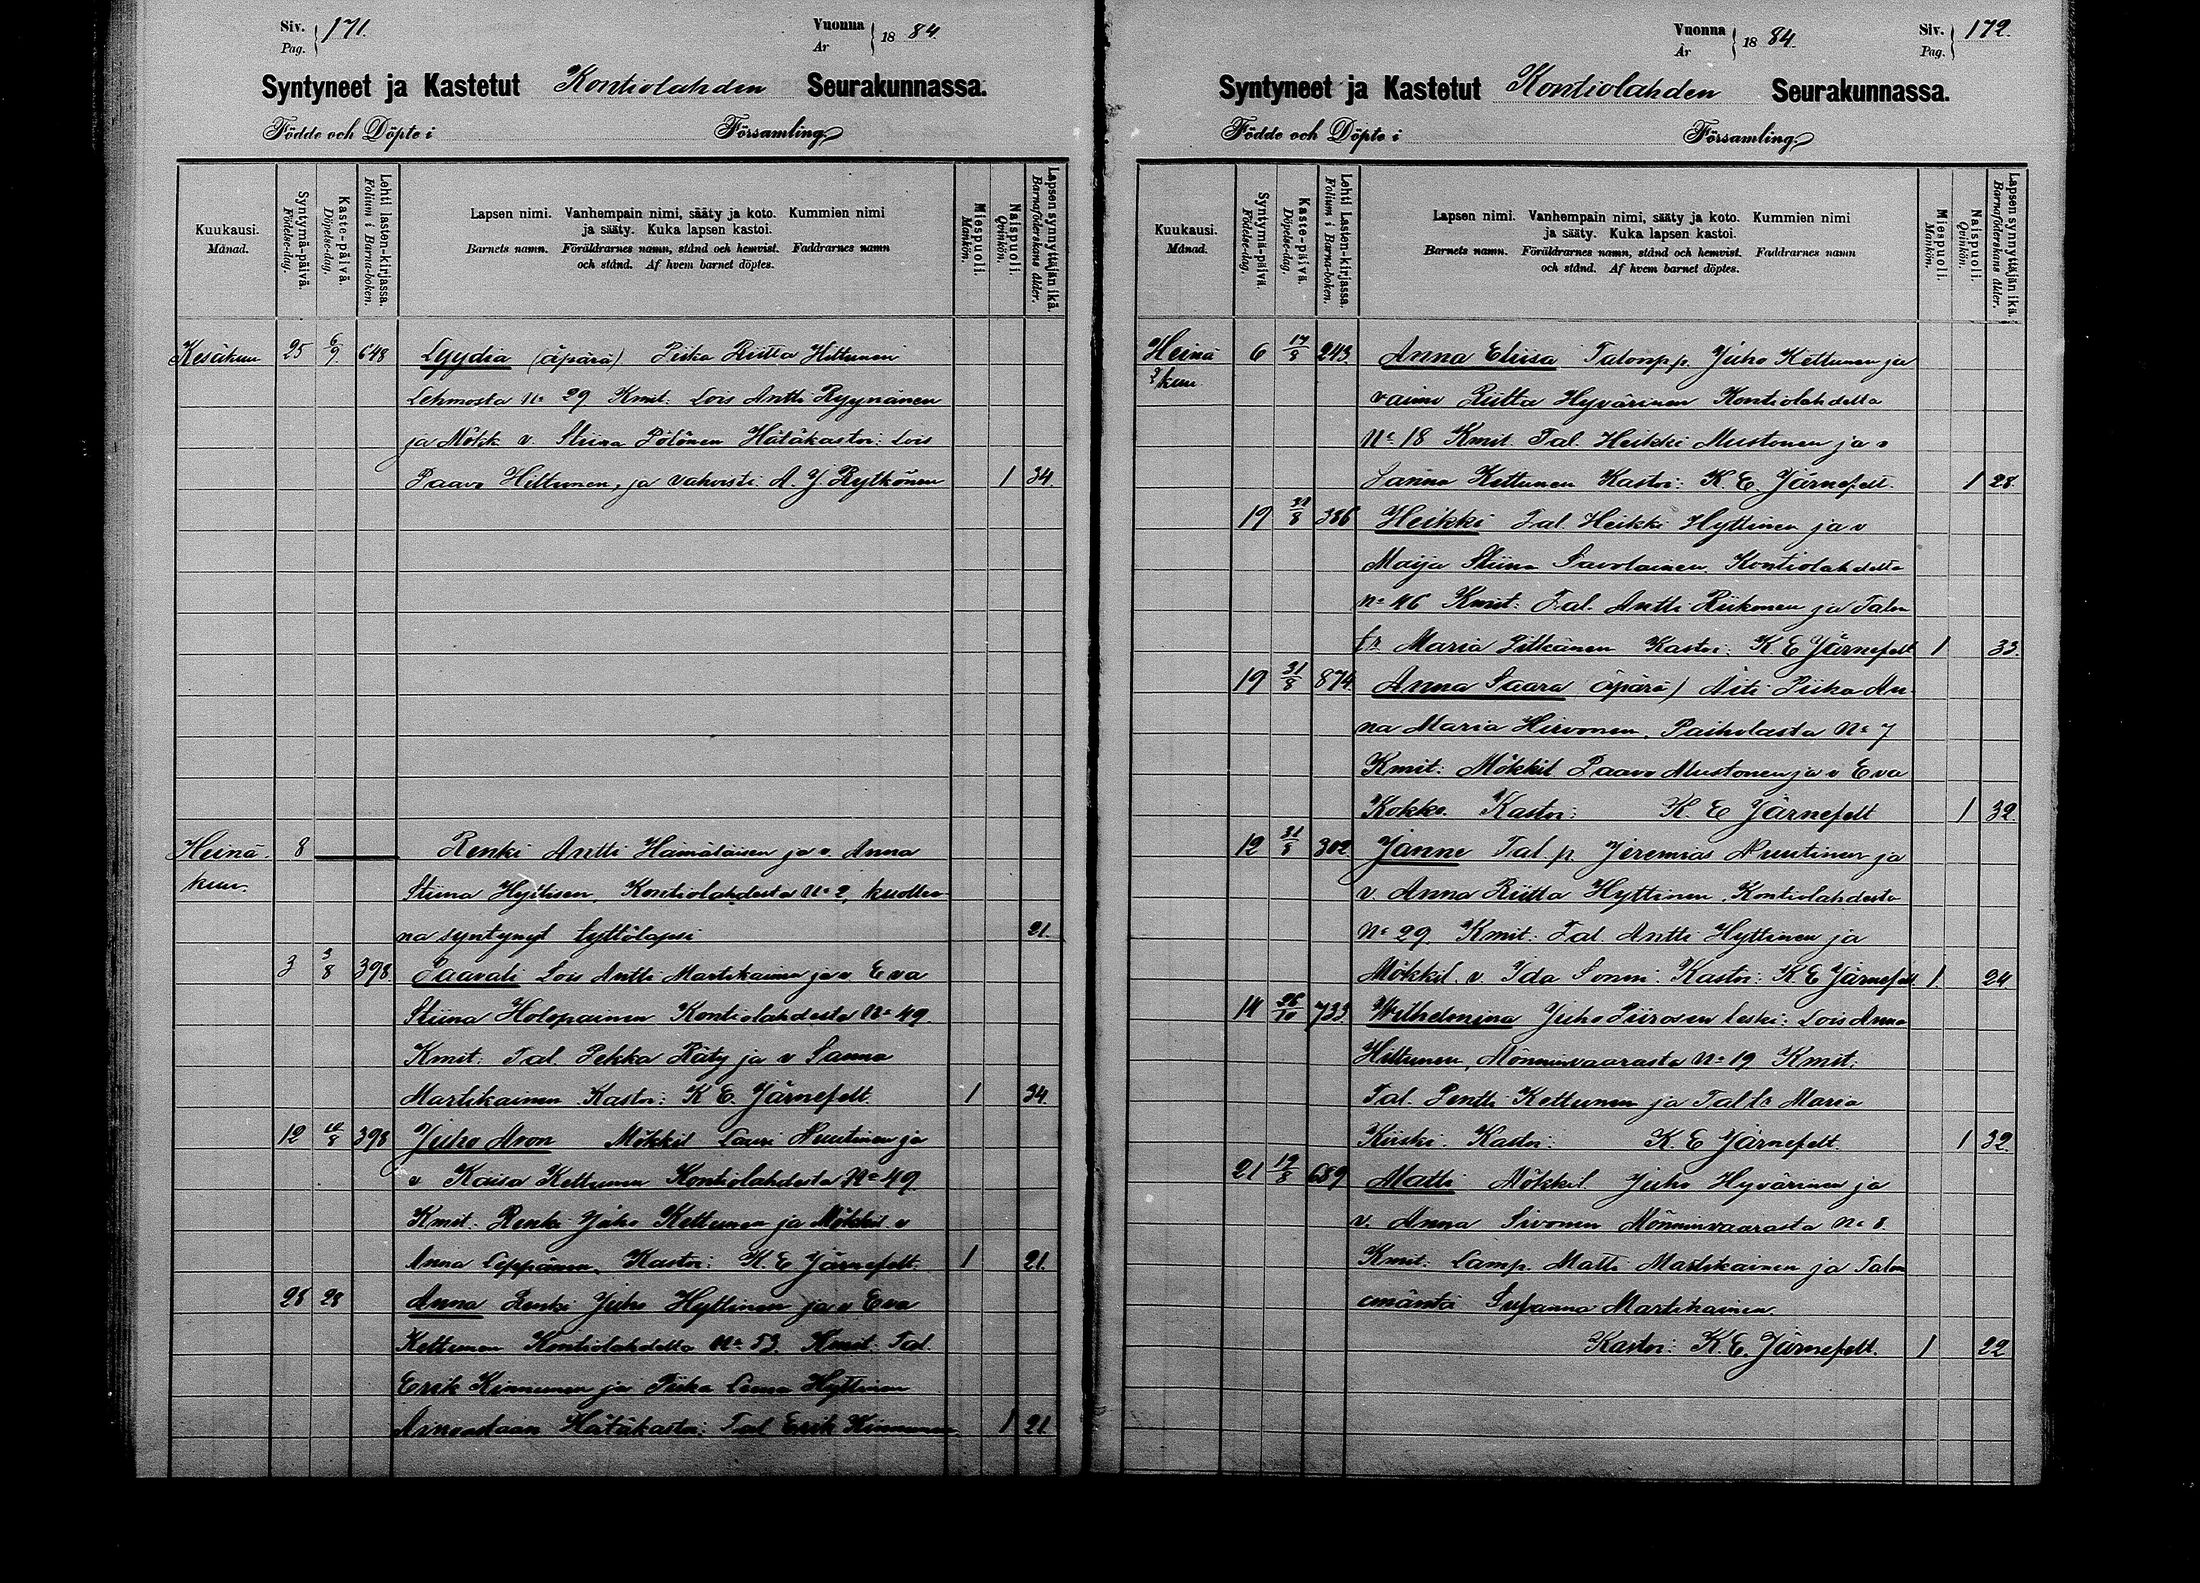 Siv. Pag. 171. Vuonna År 1884.
Syntyneet ja Kastetut Kontiolahden Seurakunnassa.
Födde och Döpte i Församling.
Kuukausi. Månad.
Syntymä-päivä. Födelse-dag.
Kaste-päivä. Döpelse-dag.
Lehti lasten-kirjassa. Folium i Barna-boken.
Lapsen nimi. Vanhempain nimi, sääty ja koto. Kummien nimi
ja sääty. Kuka lapsen kastoi.
Barnets namn. Föräldrarnes namn, stånd och hemvist. Faddrarnes namn
och stånd. Af hvem barnet döptes.
Miespuoli. Mankön.
Naispuoli. Qvinkön.
Lapsen synnyttäjän ikä. Barnaföderskans ålder.
Kesäkuu 25 6/9 648 Lyydia (äpärä) Piika Riitta Hiltunen
Lehmosta No 29 Kmit. Lois Antti Ryynänen
ja Mökk v. Stiina Pölönen Hätäkastoi: Lois
Paavo Hiltunen, ja vahvisti: A. J Rytkönen 1 34.
Heinä- 8 Renki Antti Hämäläisen ja v. Anna
kuu. Stiina Hyttisen, Kontiolahdesta No 2, kuollee
na syntynyt tyttölapsi 21.
3 3/8 398. Paavali Lois Antti Martikainen ja v Eva
Stiina Holopainen Kontiolahdesta No 49.
Kmit: Tal. Pekka Räty ja v Sanna
Martikainen. Kastoi: K E. Järnefelt. 1 34.
12 10/8 398 Juho Aron Mökkil Lauri Nuutinen ja
v Kaisa Kettunen Kontiolahdesta No 49
Kmit. Renki Juho Kettunen ja Mökkil v
Anna Leppänen. Kastoi: K. E Järnefelt. 1 21.
28 28 Anna Renki Juho Hyttinen ja v Eva
Kettunen Kontiolahdelta No 53. Kmit. Tal.
Erik Kinnunen ja Piika Leena Hyttinen
Ainoastaan Hätäkastoi: Tal Erik Kinnunen. 1 21
Vuonna År 1884. Siv. Pag. 172.
Syntyneet ja Kastetut Kontiolahden Seurakunnassa.
Födde och Döpte i Församling.
Kuukausi. Månad.
Syntymä-päivä. Födelse-dag.
Kaste-päivä. Döpelse-dag.
Lehti Lasten-kirjassa. Folium i Barna-boken.
Lapsen nimi. Vanhempain nimi, sääty ja koto. Kummien nimi
ja sääty. Kuka lapsen kastoi.
Barnets namn. Föräldrarnes namn, stånd och hemvist. Faddrarnes namn
och stånd. Af hvem barnet döptes.
Miespuoli. Mankön.
Naispuoli. Qvinkön.
Lapsen synnyttäjän ikä. Barnaföderskans ålder.
Heinä 6 17/8 243. Anna Eliisa Talonp.p. Juho Kettunen ja
kuu vaimo Riitta Hyvärinen Kontiolahdelta
No 18 Kmit. Tal. Heikki Mustonen ja v
Sanna Kettunen Kastoi: K. E. Järnefelt. 1 28.
19 31/8 386 Heikki Tal Heikki Hyttinen ja v
Maija Stiina Savolainen. Kontiolahdelta
No 46 Kmit: Tal. Antti Riikonen ja Talon
tr Maria Pitkänen Kastoi: K E Järnefelt 1 33.
19 31/8 874. Anna Saara äpärä) Äiti Piika An-
na Maria Hirvonen, Paiholasta No 7
Kmit: Mökkil Paavo Mustonen ja v Eva
Kokko. Kastoi: K. E Järnefelt 1 32.
12 31/8 302 Janne Tal. p. Jeremias Nuutinen ja
v. Anna Riitta Hyttinen, Kontiolahdesta
No 29. Kmit: Tal. Antti Hyttinen ja
Mökkil. v Ida Sonni. Kastoi: K E Järnefelt. 1 24
14 26/10 733. Wilhelmina Juho Piirosen leski: Lois Anna
Hiltunen, Mönninvaarasta No 19 Kmit:
Tal. Pentti Kettunen ja Tal tr Maria
Kiiski. Kastoi: K. E Järnefelt. 1 32.
21 19/8 689 Matti Mökkil Juho Hyvärinen ja
v. Anna Sivonen Mönninvaarasta No 8.
Kmit: Lamp. Matti Martikainen ja Talon
emäntä Susanna Martikainen.
Kastoi: K. E. Järnefelt. 1 22